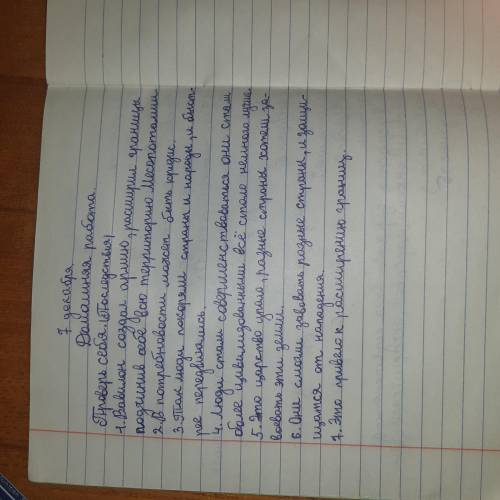 7 декабря
Домашняя работа.
Проверь себя. (Последствия)
1. Вавилон создал армию, расширил границы
подчинив себе всю территорию Месопотамии
2. В потребновости может быть кризис.
3. Так люди покоряли страны и народы, и быст-
рее передвигались.
4. Люди стали совершенствоваться они стали
более цивилизованными всё стало немного лучше
5. Это царство упало, разные страны хотели за-
воевать эти земли.
6. Они смогли завовать разные страны, и защи-
щатся от нападения.
7. Это привело к расширению границ.